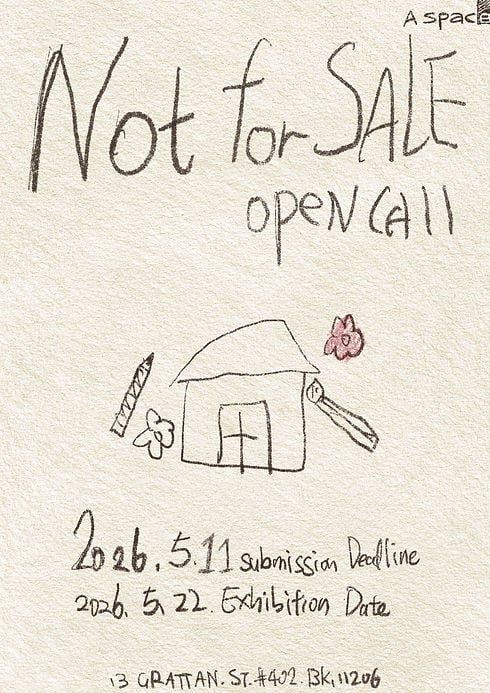 A space
Not for SALE
open call
2026. 5.11 submission Deadline
2026. 5. 22. Exhibition Date
13 GRATTAN. ST. #402. BK, 11206